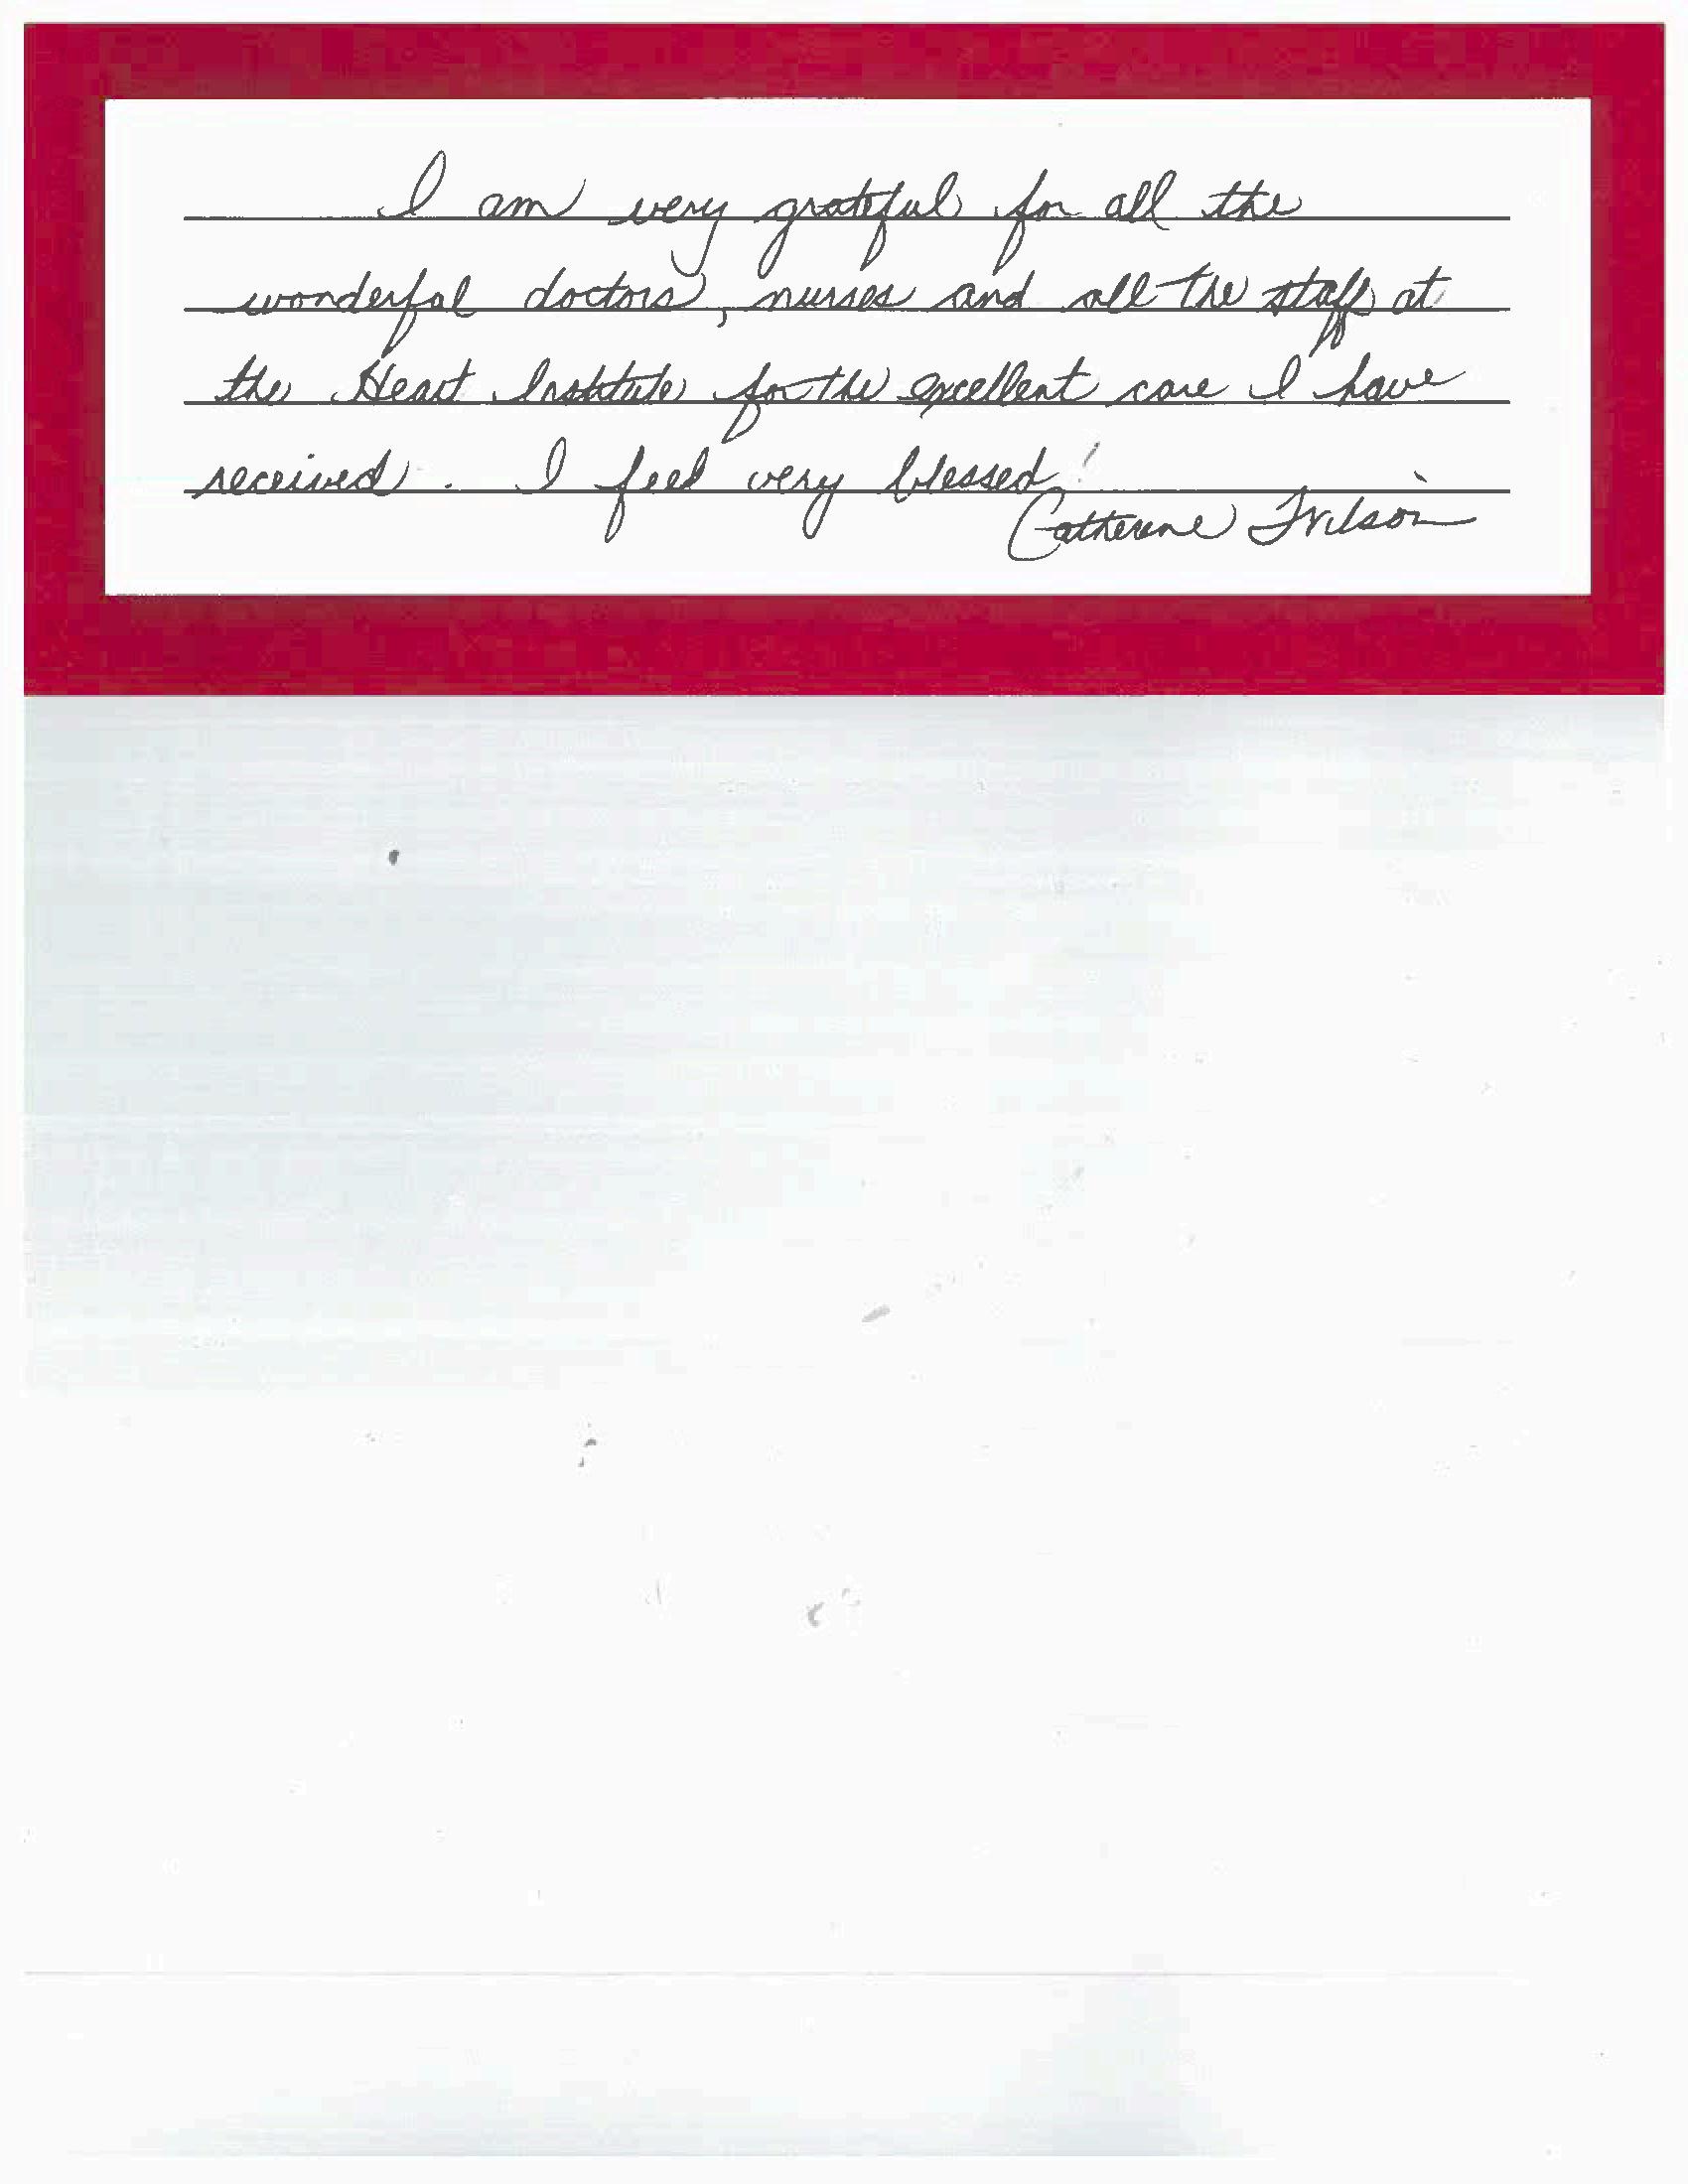 I am very grateful for all the
wonderful doctors, nurses and all the staff at
the Heart Institute for the excellent care I have
received. I feel very blessed!
Catherine